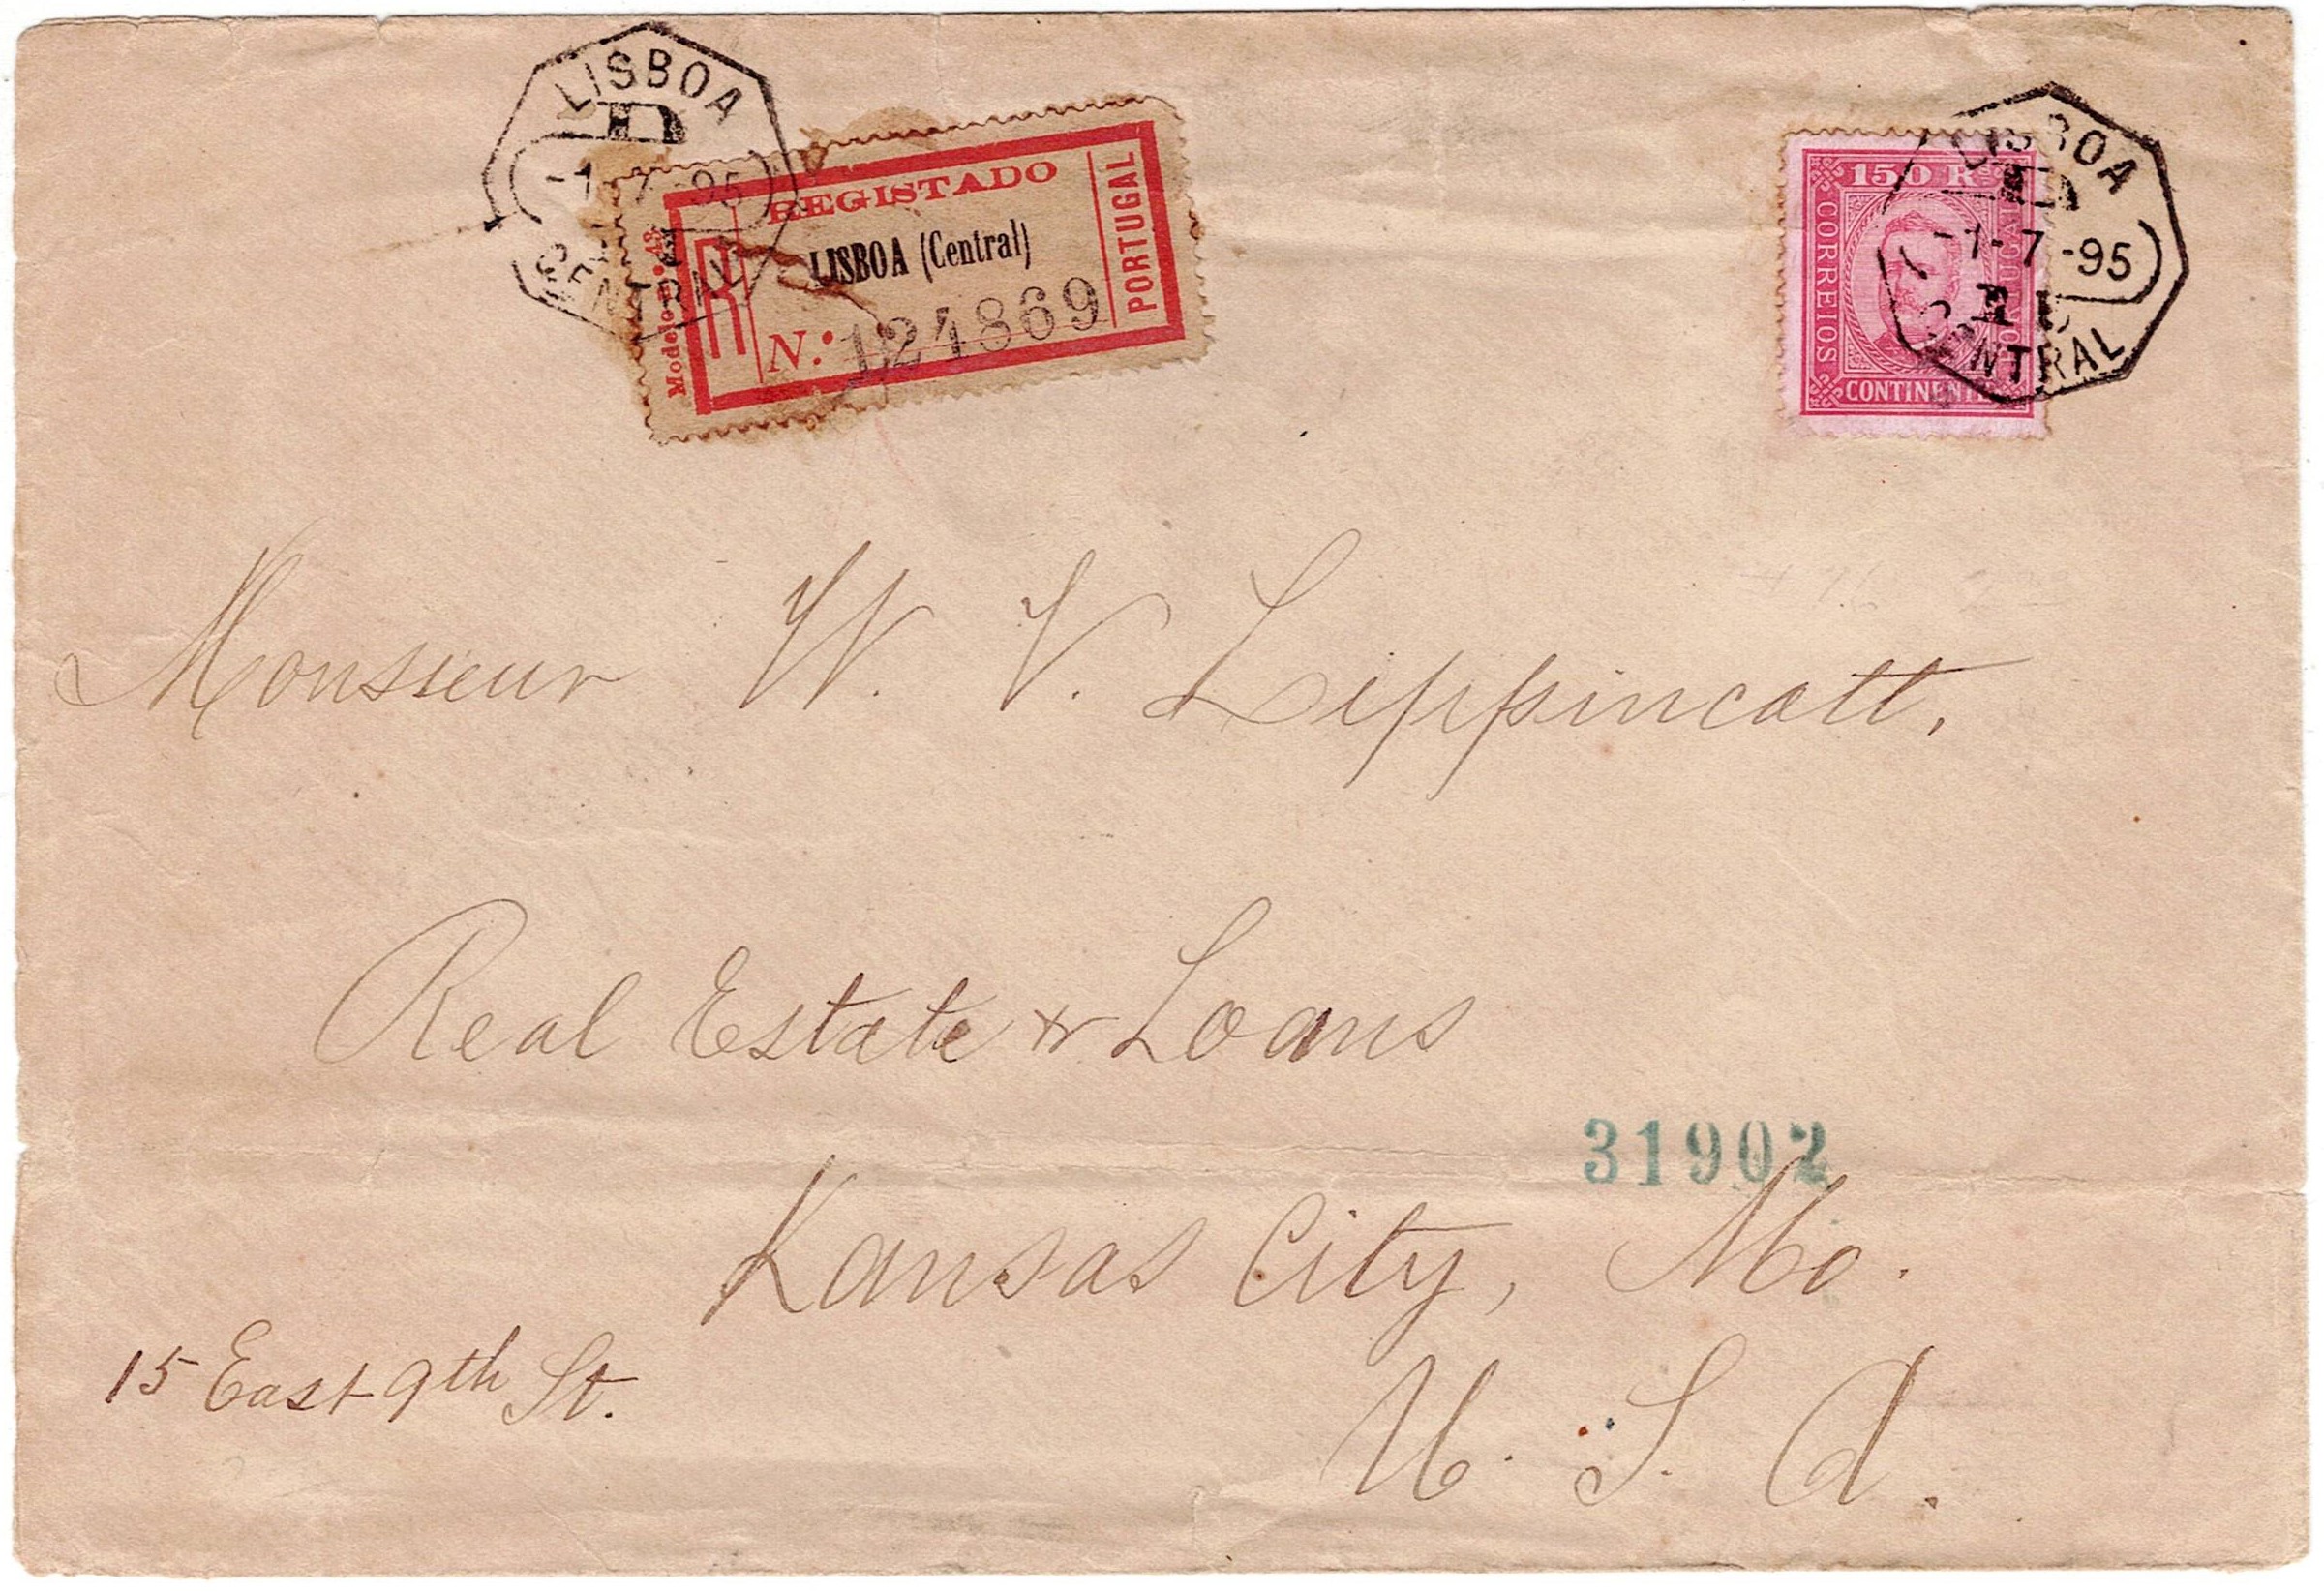 LISBOA
-1-7-95
CENTRAL
REGISTADO
LISBOA (Central)
N.º 124869
R
PORTUGAL
Modelo n.º 43
150 Rs
CORREIOS
CONTINENTE
LISBOA
-1-7-95
CENTRAL
Monsieur W. V. Lippincott,
Real Estate & Loans
31902
Kansas City, Mo.
15 East 9th St.
U. S. A.